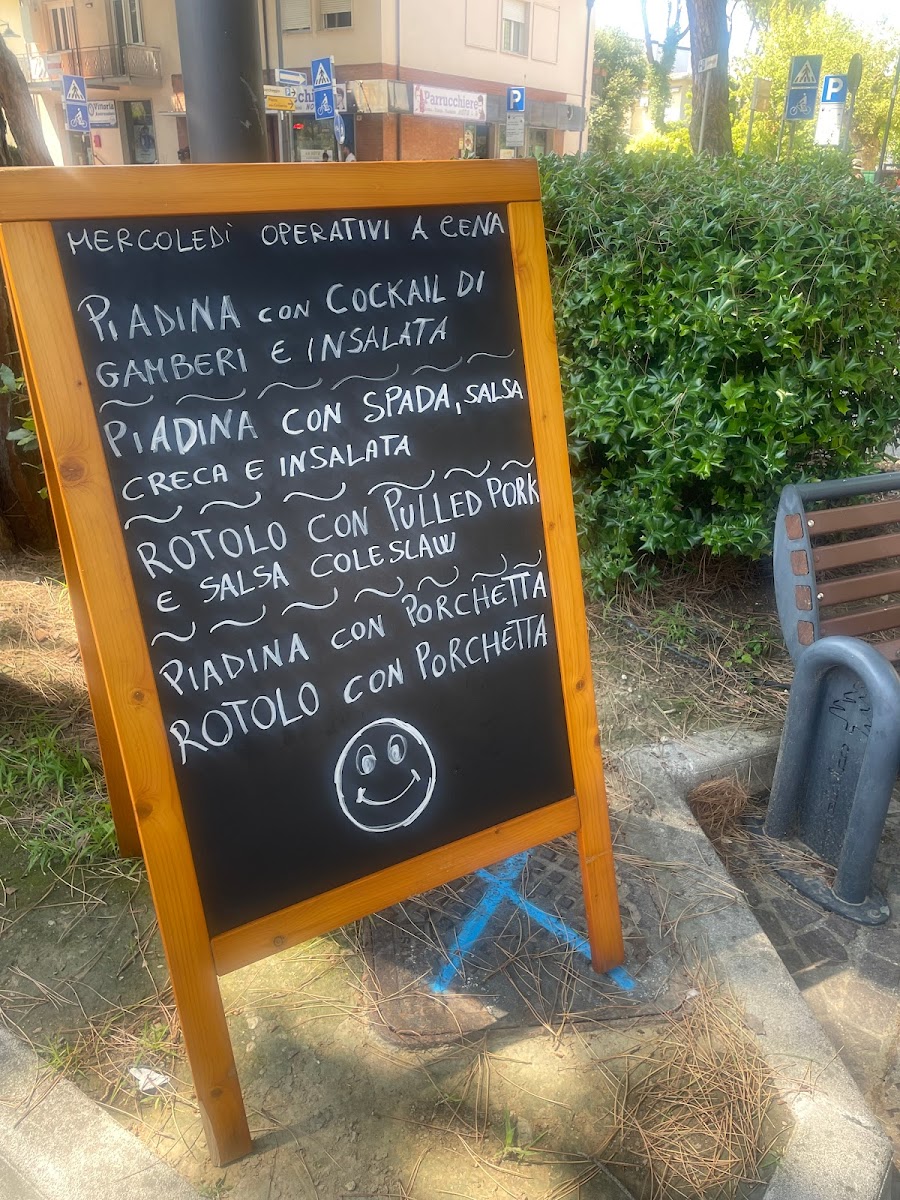 Parrucchiere
P
P
MERCOLEDÌ OPERATIVI A CENA
PIADINA CON COCKAIL DI
GAMBERI E INSALATA
PIADINA CON SPADA, SALSA
CRECA E INSALATA
ROTOLO CON PULLED PORK
E SALSA COLESLAW
PIADINA CON PORCHETTA
ROTOLO CON PORCHETTA